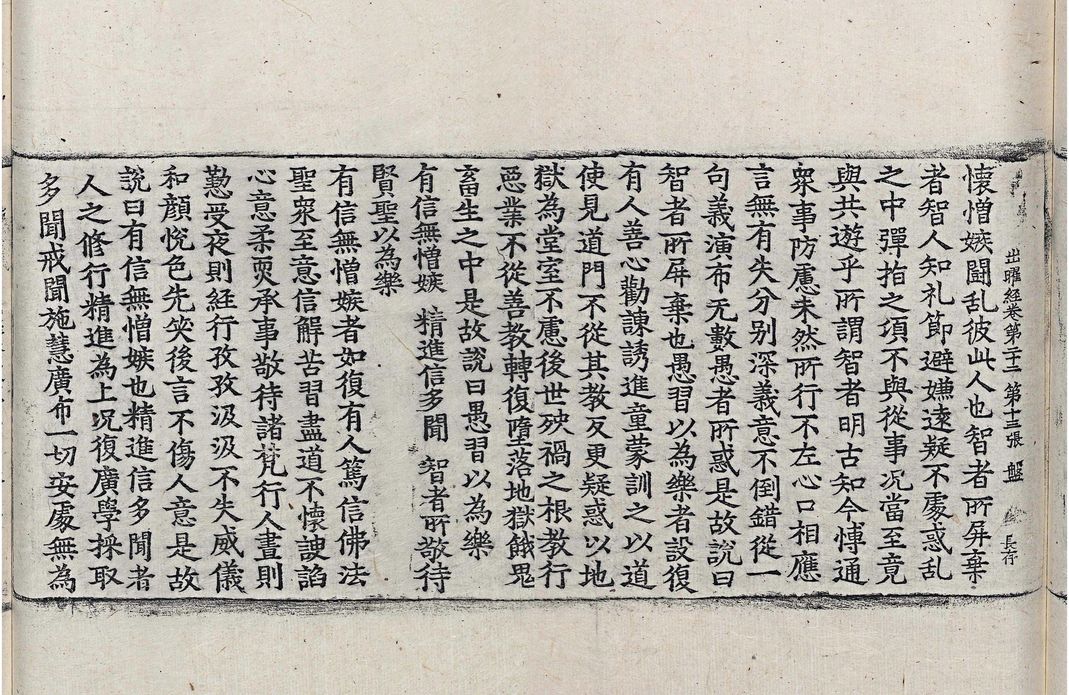 出曜經卷第二十二 第十三張 盤 長存
懷憎嫉鬪乱彼此人也智者所屏棄
者智人知礼節避嫌遠疑不處惑乱
之中彈指之頃不與從事况當至竟
與共遊乎所謂智者明古知今愽通
衆事防慮未然所行不左心口相應
言無有失分别深義意不倒錯從一
句義演布无數愚者所惑是故說曰
智者所屏棄也愚習以為樂者設復
有人善心勸諫誘進童蒙訓之以道
使見道門不從其教反更疑惑以地
獄為堂室不慮後世殃禍之根教行
惡業不從善教轉復墮落地獄餓鬼
畜生之中是故說曰愚習以為樂
有信無憎嫉 精進信多聞 智者所敬待
賢聖以為樂
有信無憎嫉者如復有人篤信佛法
聖衆至意信解苦習盡道不懷諛諂
心意柔耎承事敬待諸梵行人晝則
懃受夜則經行孜孜汲汲不失威儀
和顔悅色先笑後言不傷人意是故
說曰有信無憎嫉也精進信多聞者
人之修行精進為上况復廣學採取
多聞戒聞施慧廣布一切安處無為